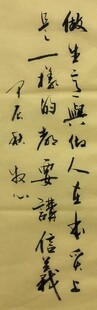 做生意與做人在本質上
是一樣的都要講信義
甲辰秋 牧心